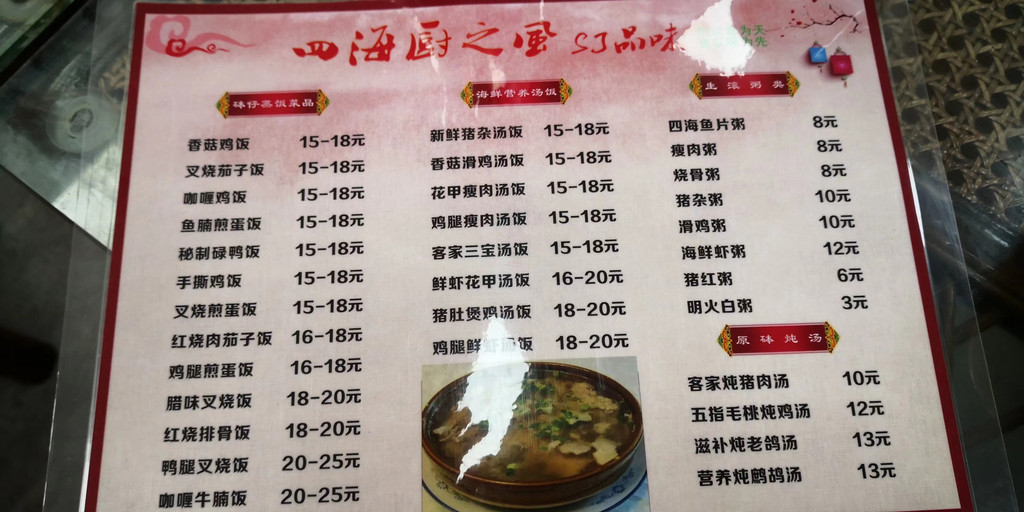 四海厨之风 SJ品味
为天
先
砵仔蒸饭菜品
香菇鸡饭 15-18元
叉烧茄子饭 15-18元
咖喱鸡饭 15-18元
鱼腩煎蛋饭 15-18元
秘制碌鸭饭 15-18元
手撕鸡饭 15-18元
叉烧煎蛋饭 15-18元
红烧肉茄子饭 16-18元
鸡腿煎蛋饭 16-18元
腊味叉烧饭 18-20元
红烧排骨饭 18-20元
鸭腿叉烧饭 20-25元
咖喱牛腩饭 20-25元
海鲜营养汤饭
新鲜猪杂汤饭 15-18元
香菇滑鸡汤饭 15-18元
花甲瘦肉汤饭 15-18元
鸡腿瘦肉汤饭 15-18元
客家三宝汤饭 15-18元
鲜虾花甲汤饭 16-20元
猪肚煲鸡汤饭 18-20元
鸡腿鲜虾汤饭 18-20元
生滚粥类
四海鱼片粥 8元
瘦肉粥 8元
烧骨粥 8元
猪杂粥 10元
滑鸡粥 10元
海鲜虾粥 12元
猪红粥 6元
明火白粥 3元
原砵炖汤
客家炖猪肉汤 10元
五指毛桃炖鸡汤 12元
滋补炖老鸽汤 13元
营养炖鹧鸪汤 13元